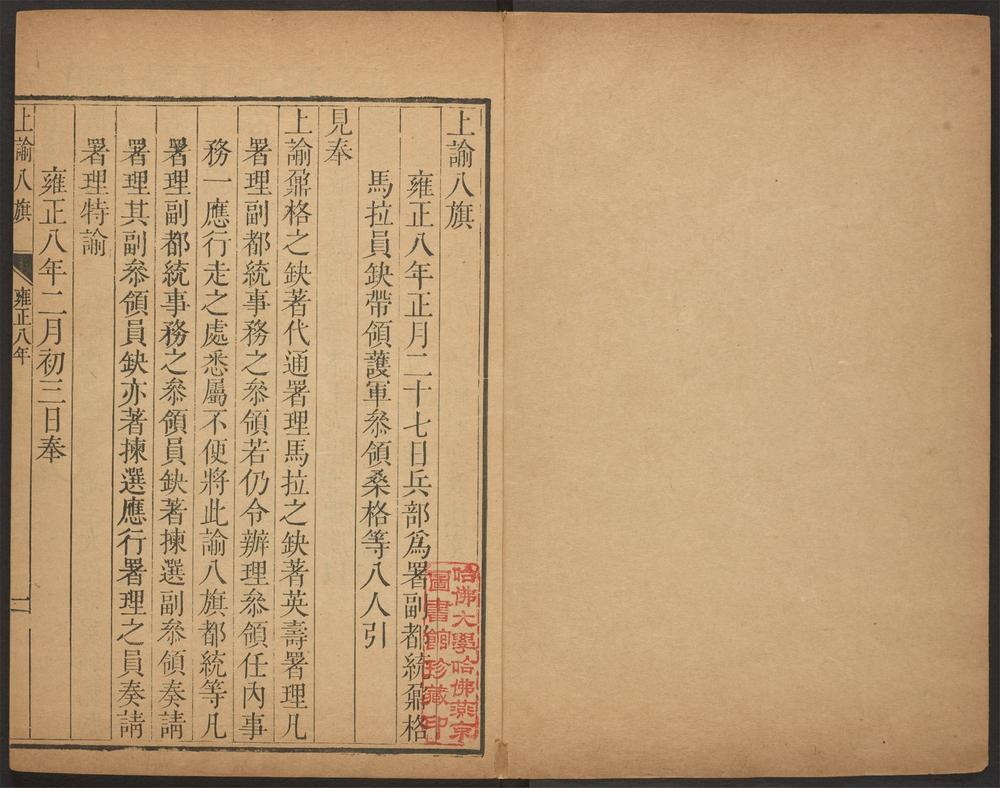 上諭八旗
雍正八年正月二十七日兵部爲署副都統鼐格
馬拉員缺帶領護軍叅領桑格等八人引
見奉
上諭鼐格之缺著代通署理馬拉之缺著英壽署理凡
署理副都統事務之叅領若仍令辦理叅領任內事
務一應行走之處悉屬不便將此諭八旗都統等凡
署理副都統事務之叅領員缺著揀選副叅領奏請
署理其副叅領員缺亦著揀選應行署理之員奏請
署理特諭
雍正八年二月初三日奉
上諭八旗
雍正八年
一
哈佛大學哈佛燕京
圖書館珍藏印